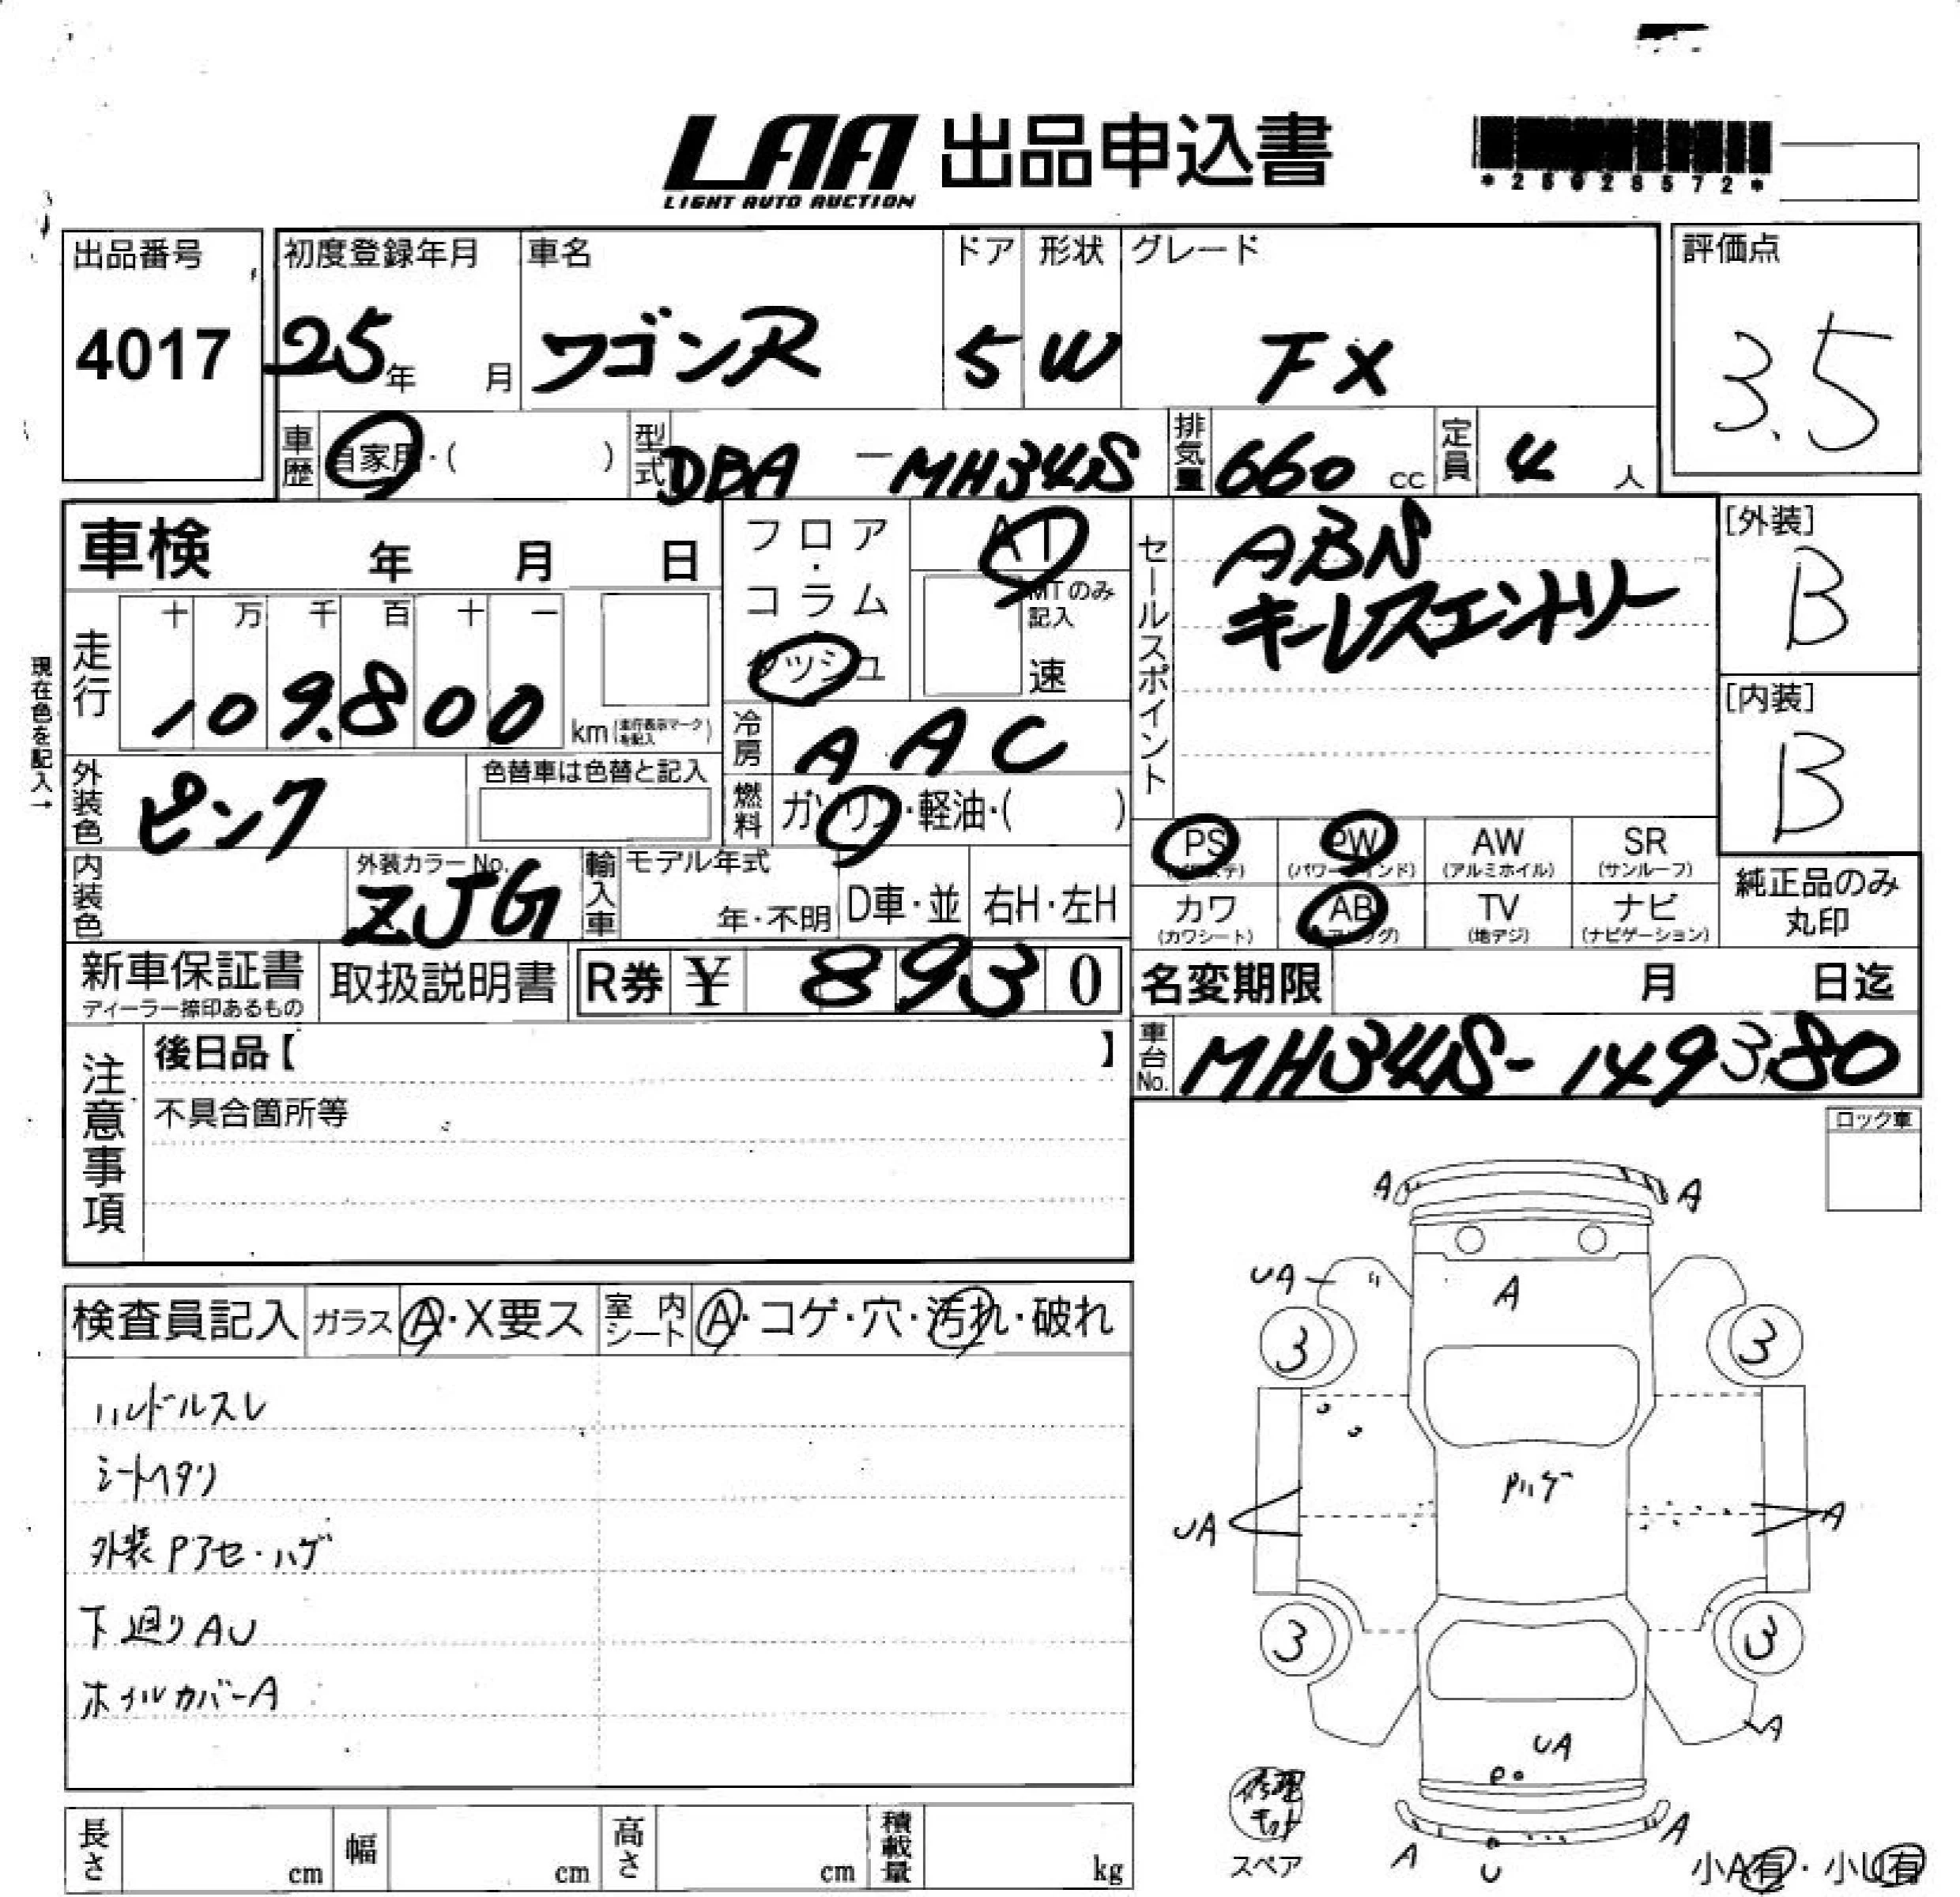 LAA 出品申込書
LIGHT AUTO AUCTION
*25028572*
出品番号 初度登録年月 車名 ドア 形状 グレード 評価点
4017 25年 月 ワゴンR 5 W FX 3.5
車歴 自家用・( ) 型式 DBA-MH34S 排気量 660 cc 定員 4 人
車検 年 月 日
フロア・コラム ダッシュ AT
MTのみ記入
速
セールスポイント
ABN
キーレスエントリー
[外装]
B
[内装]
B
現在色を記入→
走行 十 万 千 百 十 一
109,800 km (走行表示マークを記入)
冷房 AAC
外装色 ピンク 色替車は色替と記入
燃料 ガソリン・軽油・( )
PS PW (パワーウインド) AW (アルミホイル) SR (サンルーフ)
内装色 外装カラーNo. ZJG 輸入車 モデル年式 年・不明 D車・並 右H・左H
カワ (カワシート) AB (エアバッグ) TV (地デジ) ナビ (ナビゲーション)
純正品のみ丸印
新車保証書 取扱説明書 R券 ¥ 8930
ディーラー捺印あるもの
名変期限 月 日迄
車台No. MH34S-149380
注意事項
後日品【 】
不具合箇所等
ロック車
検査員記入 ガラス A・X要ス 室内シート A・コゲ・穴・汚れ・破れ
ハンドルスレ
シートヘタリ
外装Pアセ・ハゲ
下廻りAU
ホイルカバーA
A A
UA A
3 3
Pハゲ
UA A
3 3
A
UA
P
A
A U
修理キット
スペア
小A有・小U有
長さ cm 幅 cm 高さ cm 積載量 kg